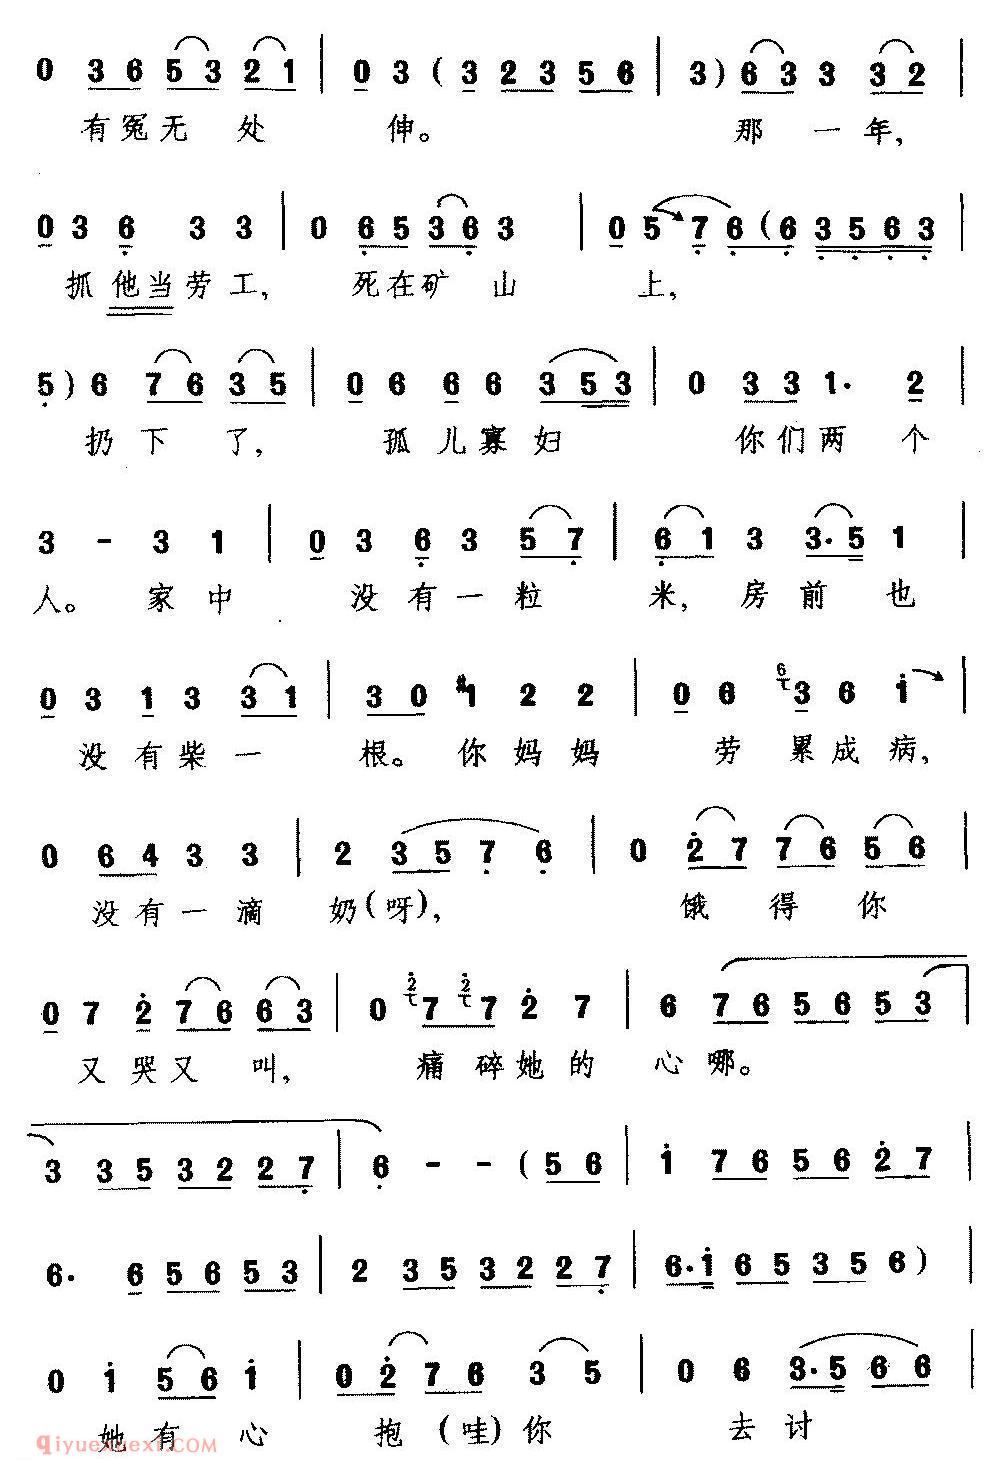 0 36 53 21 | 0 3 ( 3 23 56 | 3 ) 63 3 32 |
有冤无 处 伸。 那 一 年,
0 3 6 3 3 | 0 65 36 3 | 0 5 7 6 ( 6 3563 |
抓 他当劳工, 死在矿 山 上,
5 ) 6 76 35 | 0 6 6 6 353 | 0 33 1· 2 |
扔 下 了, 孤儿寡妇 你们两 个
3 - 3 1 | 0 3 6 3 57 | 61 3 3·5 1 |
人。 家 中 没有一粒 米, 房 前 也
0 3 1 3 31 | 30 #1 2 2 | 0 6 6 3 6 i |
没有柴一 根。 你妈妈 劳 累成病,
0 64 3 3 | 2 35 7 6 | 0 27 76 56 |
没有一滴 奶(呀), 饿 得 你
0 7 2 76 63 | 0 2 7 2 7 2 7 | 6 76 56 53 |
又哭又 叫, 痛 碎她的 心哪。
3 35 32 27 | 6 - - ( 56 | i 76 56 27 |
6· 6 56 53 | 2 35 32 27 | 6·i 65 35 6 ) |
0 i 56 i | 0 2 76 3 5 | 0 6 3·5 66
她 有 心 抱 (哇)你 去讨
qiyuexuexi.COM